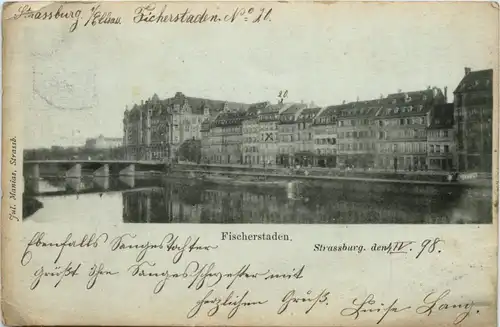 Strassburg i/Elsass Fischerstaden. No 20.
20
Jul. Manias, Strassb.
Fischerstaden.
Strassburg. den 4/IV. 98.
Ebenfalls Sangestochter
grüßt Ihn Sangesschwester mit
herzlichen Gruß. Luise Lang.